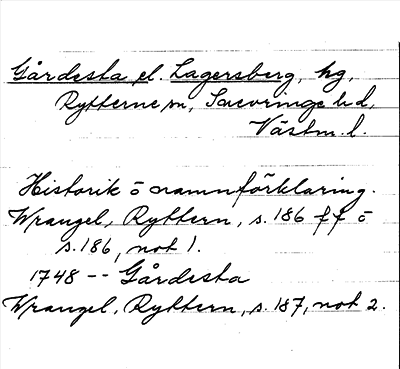 Gårdesta el. Lagersberg, hg,
Rytterne sn, Snevringe hd,
Västm. l.
Historik o namnförklaring.
Wrangel, Ryttern, s. 186 ff o
s. 186, not 1.
1748 -- Gårdesta
Wrangel, Ryttern, s. 187, not 2.